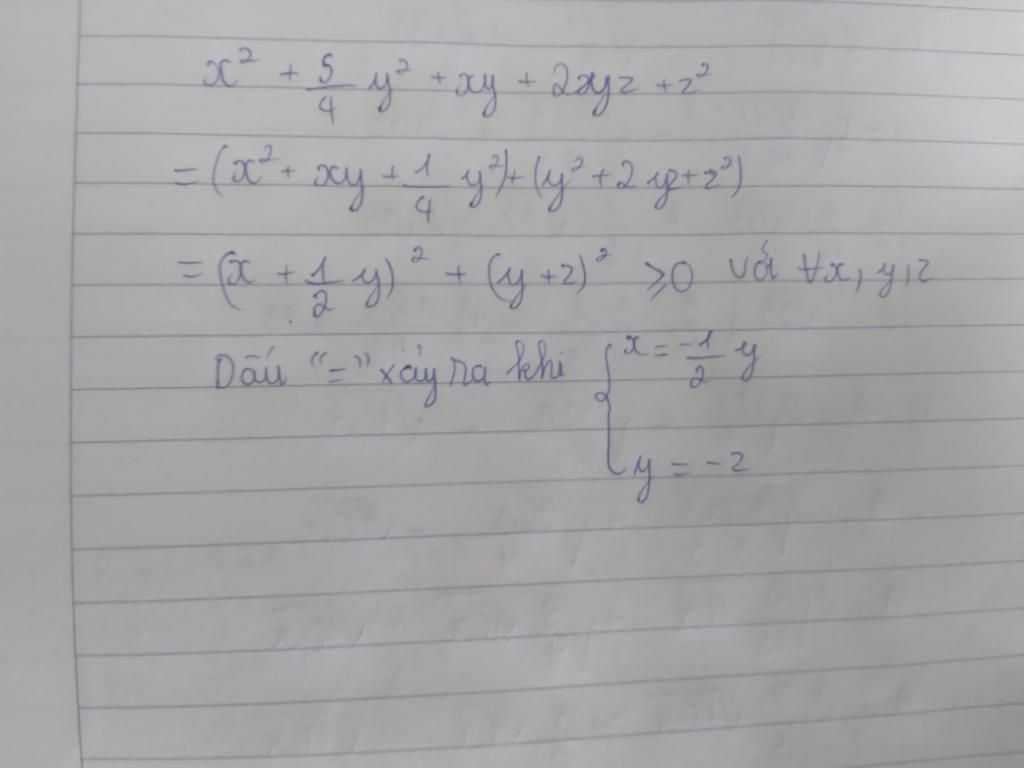 x² + 5/4 y² + xy + 2xyz + z²
= (x² + xy + 1/4 y²) + (y² + 2yz + z²)
= (x + 1/2 y)² + (y + z)² ⩾ 0 với ∀x, y, z
Dấu "=" xảy ra khi { x = -1/2 y
y = -z